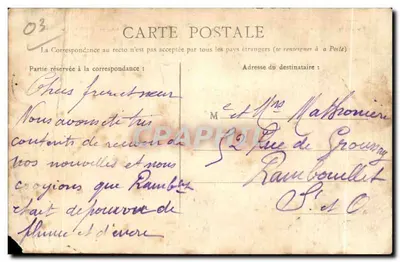 03
CARTE POSTALE
La Correspondance au recto n'est pas acceptée par tous les pays étrangers (se renseigner à la Poste)
Partie réservée à la correspondance :
Adresse du destinataire :
Chers frere et sœur
Nous avons été très
contents de recevoir de
vos nouvelles et nous
croyions que Ramb et
était dépourvu de
plume et d'encre
M et Mme
52 Rue de Groussay
Rambouillet
S. et O.